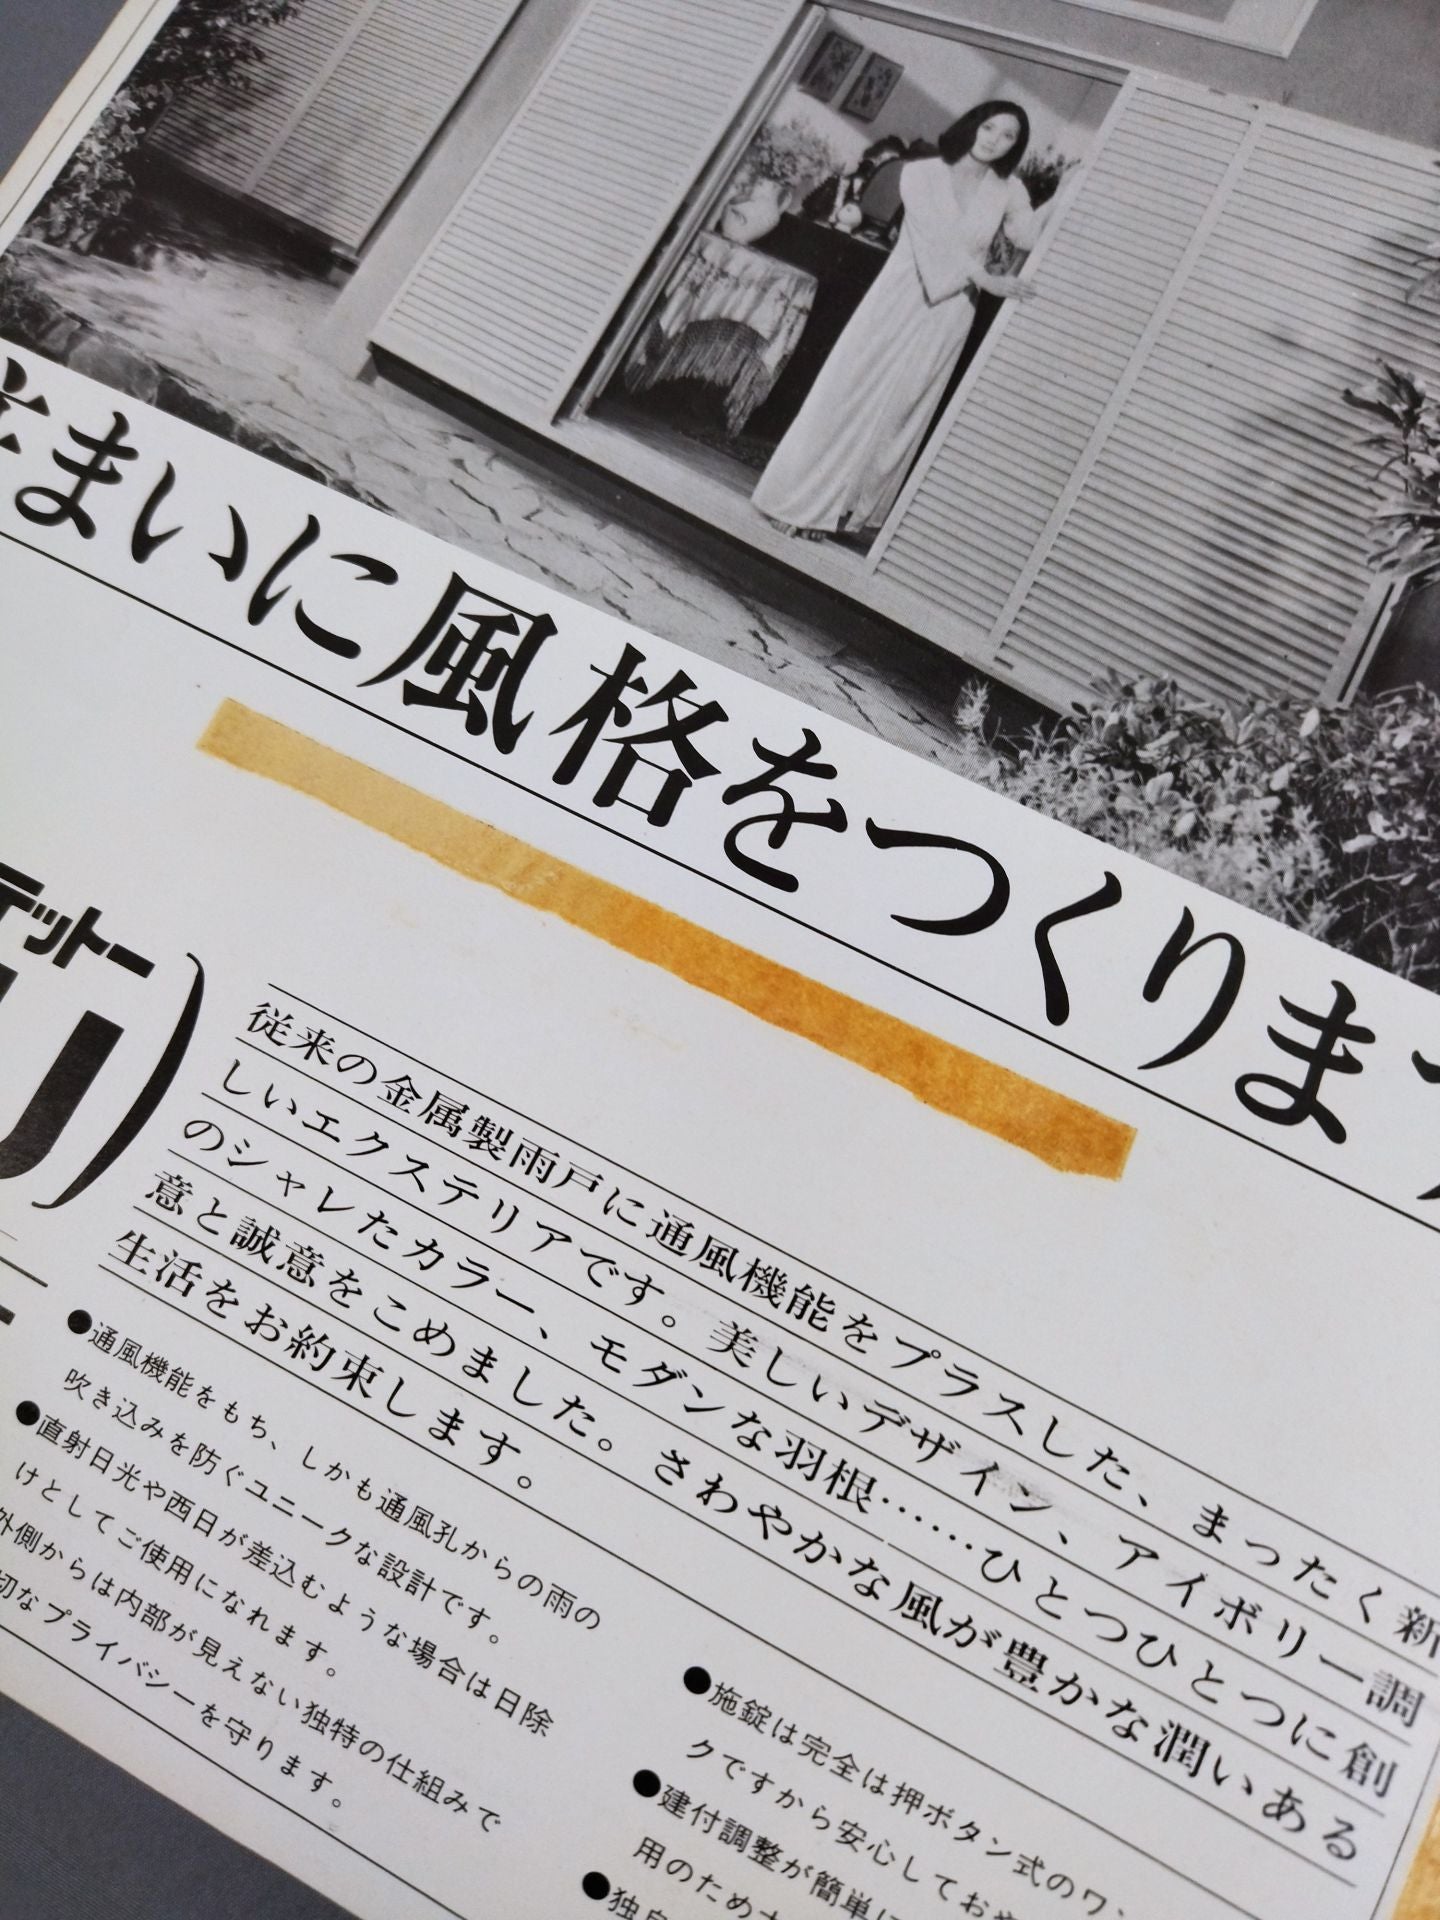 住まいに風格をつくりま
テットー
従来の金属製雨戸に通風機能をプラスした、まったく新
しいエクステリアです。美しいデザイン、アイボリー調
のシャレたカラー、モダンな羽根……ひとつひとつに創
意と誠意をこめました。さわやかな風が豊かな潤いある
生活をお約束します。
●通風機能をもち、しかも通風孔からの雨の
吹き込みを防ぐユニークな設計です。
●直射日光や西日が差込むような場合は日除
けとしてご使用になれます。
外側からは内部が見えない独特の仕組みで
切なプライバシーを守ります。
●施錠は完全は押ボタン式のワ、
クですから安心してお
●建付調整が簡単に
用のため
●独自